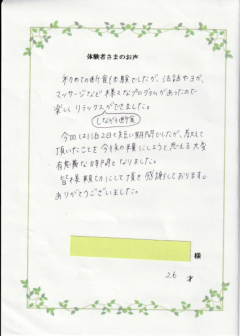 体験者さまのお声
初めての断食体験でしたが、法話やヨガ、
マッサージなど様々なプログラムがあったので
楽しくリラックスができました。
しながら断食
今回は1泊2日と短い期間でしたが、教えて
頂いたことを今後の糧にしようと思える大変
有意義な時間となりました。
皆様親切にして頂き感謝しております。
ありがとうございました。
様
26 才